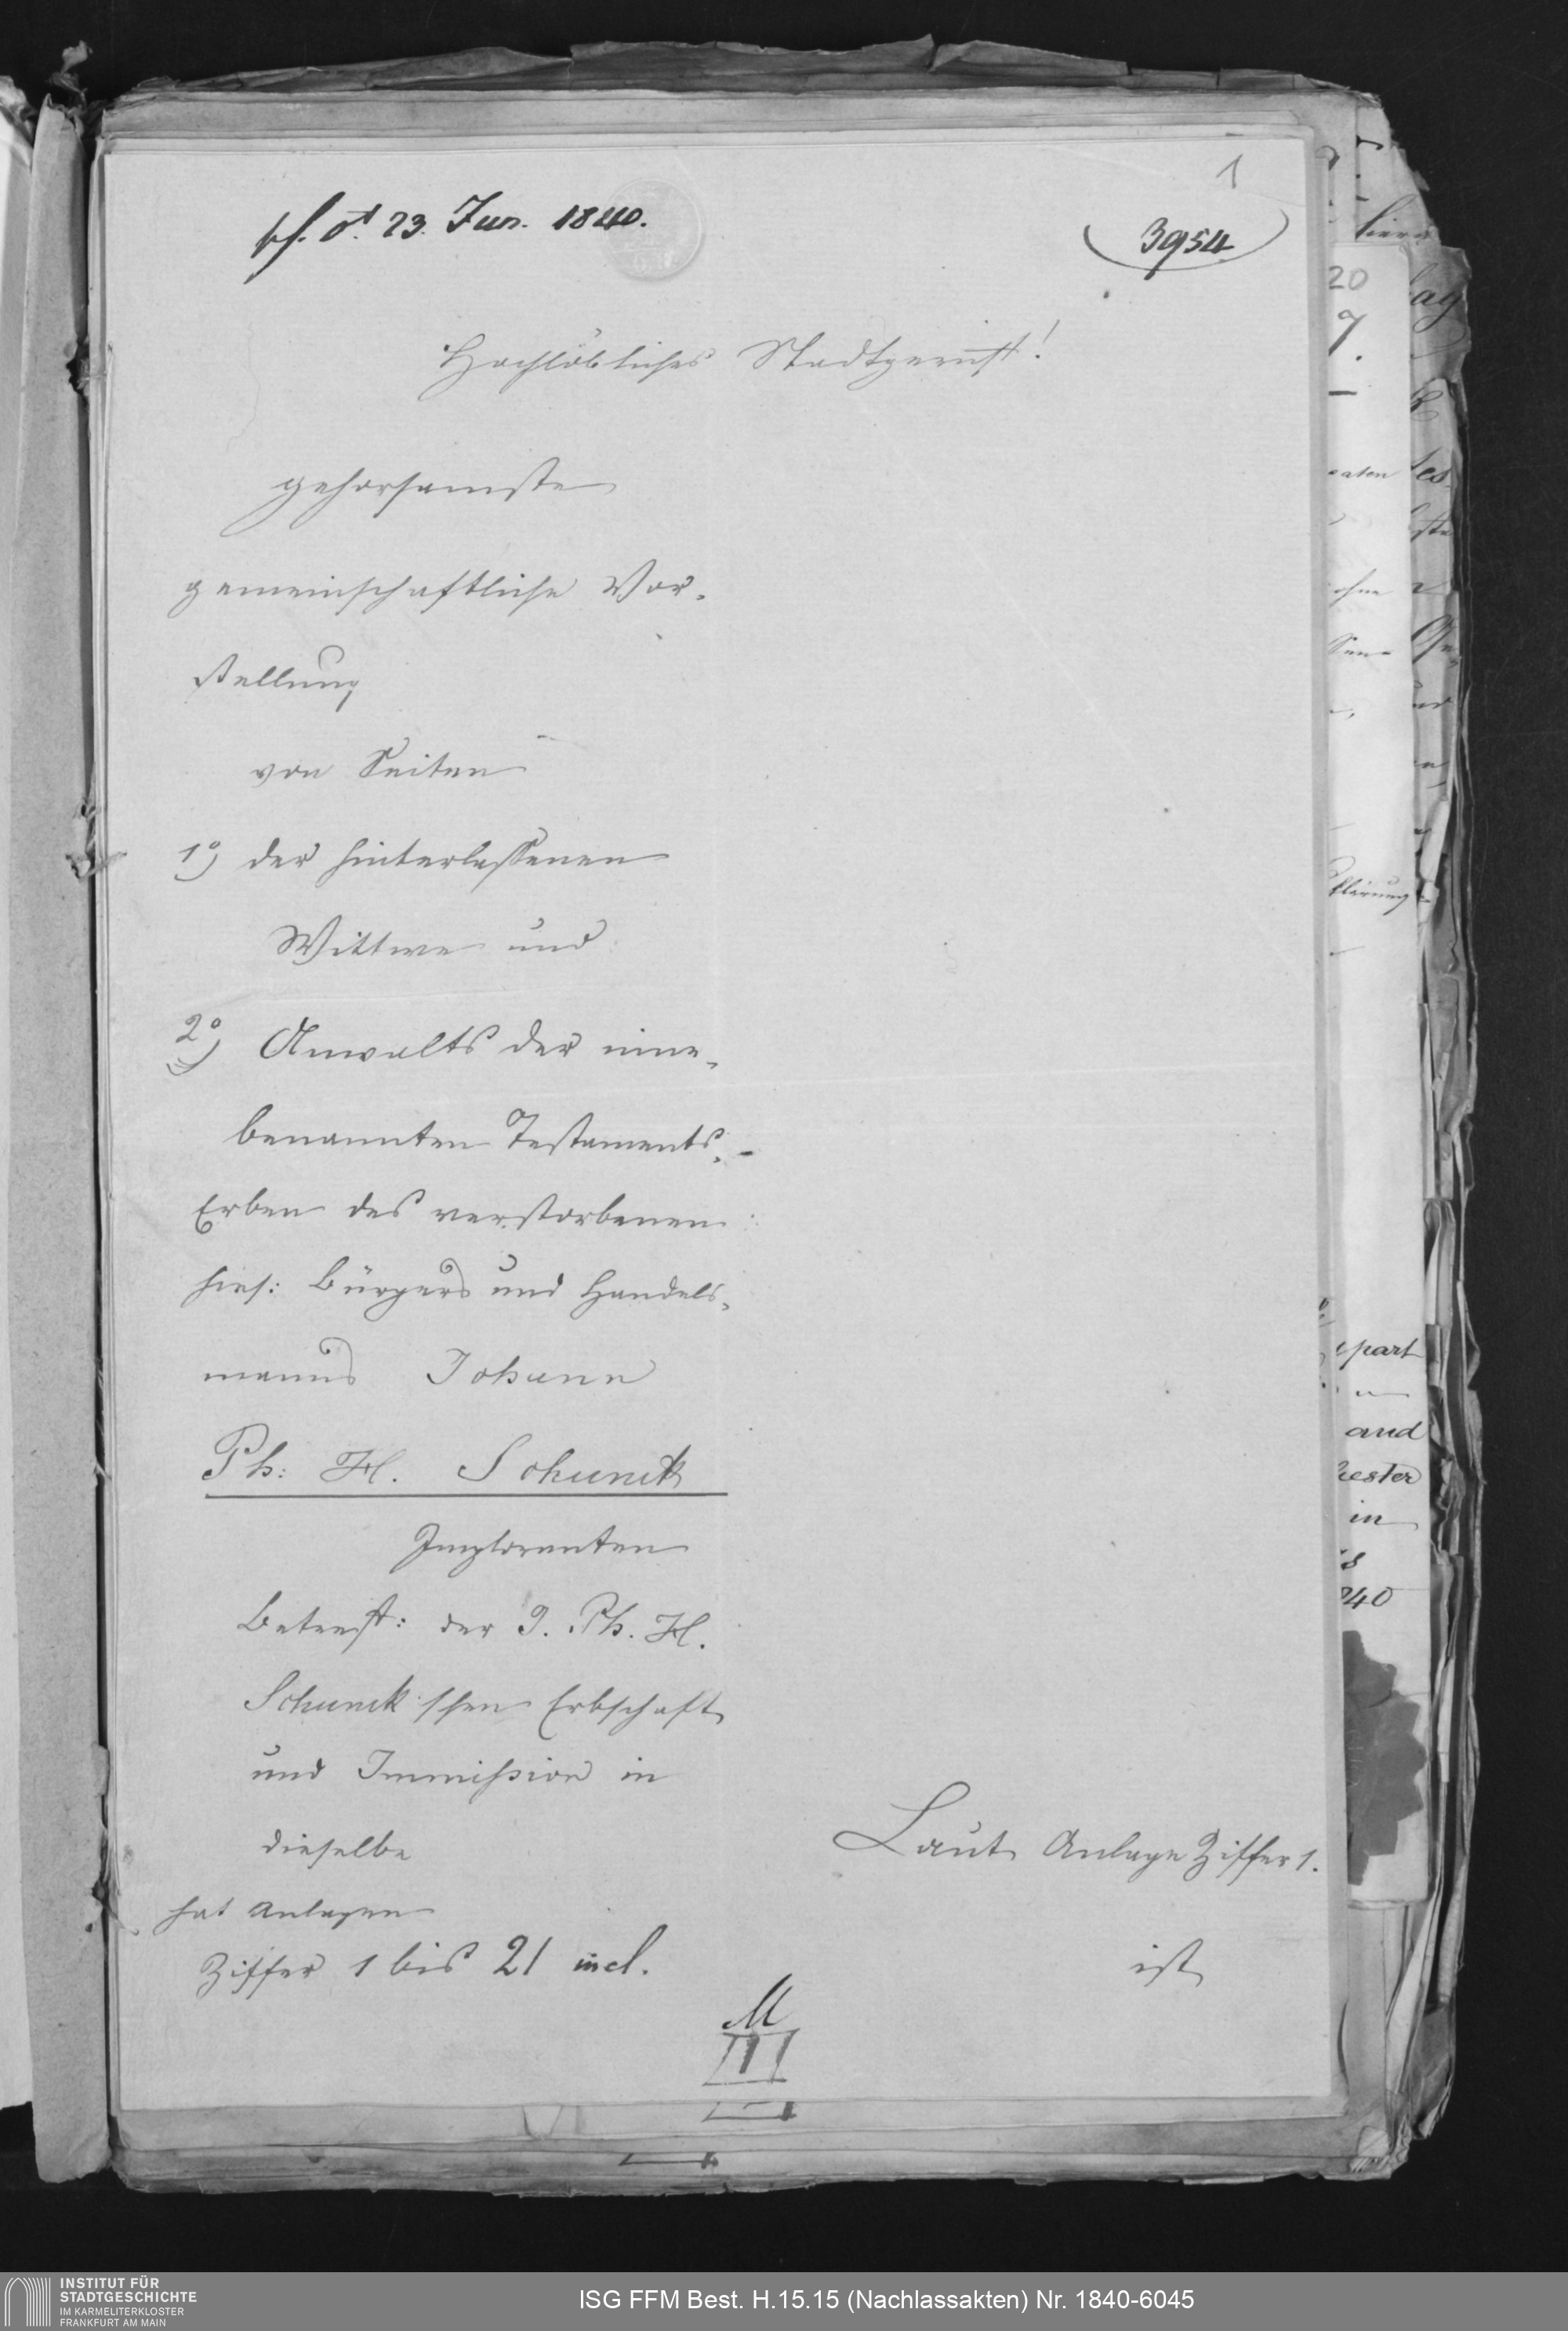 1
ps. d. 23. Jun. 1840.
3954
Hochlöbliches Stadtgericht!
gehorsamste
gemeinschaftliche Vor-
stellung
von Seiten
1º) der hinterlassenen
Wittwe und
2º) Anwalts der inne-
benannten Testaments-
Erben des verstorbenen
hies: Bürgers und Handels-
manns Johann
Ph: H. Schunck
Imploranten
Betreff: der J. Ph. H.
Schunck'schen Erbschaft
und Immission in
dieselbe
hat Anlagen
Ziffer 1 bis 21 incl.
Laut Anlage Ziffer 1.
ist
M
III
20
ohne
part
and
in
INSTITUT FÜR
STADTGESCHICHTE
IM KARMELITERKLOSTER
FRANKFURT AM MAIN
ISG FFM Best. H.15.15 (Nachlassakten) Nr. 1840-6045